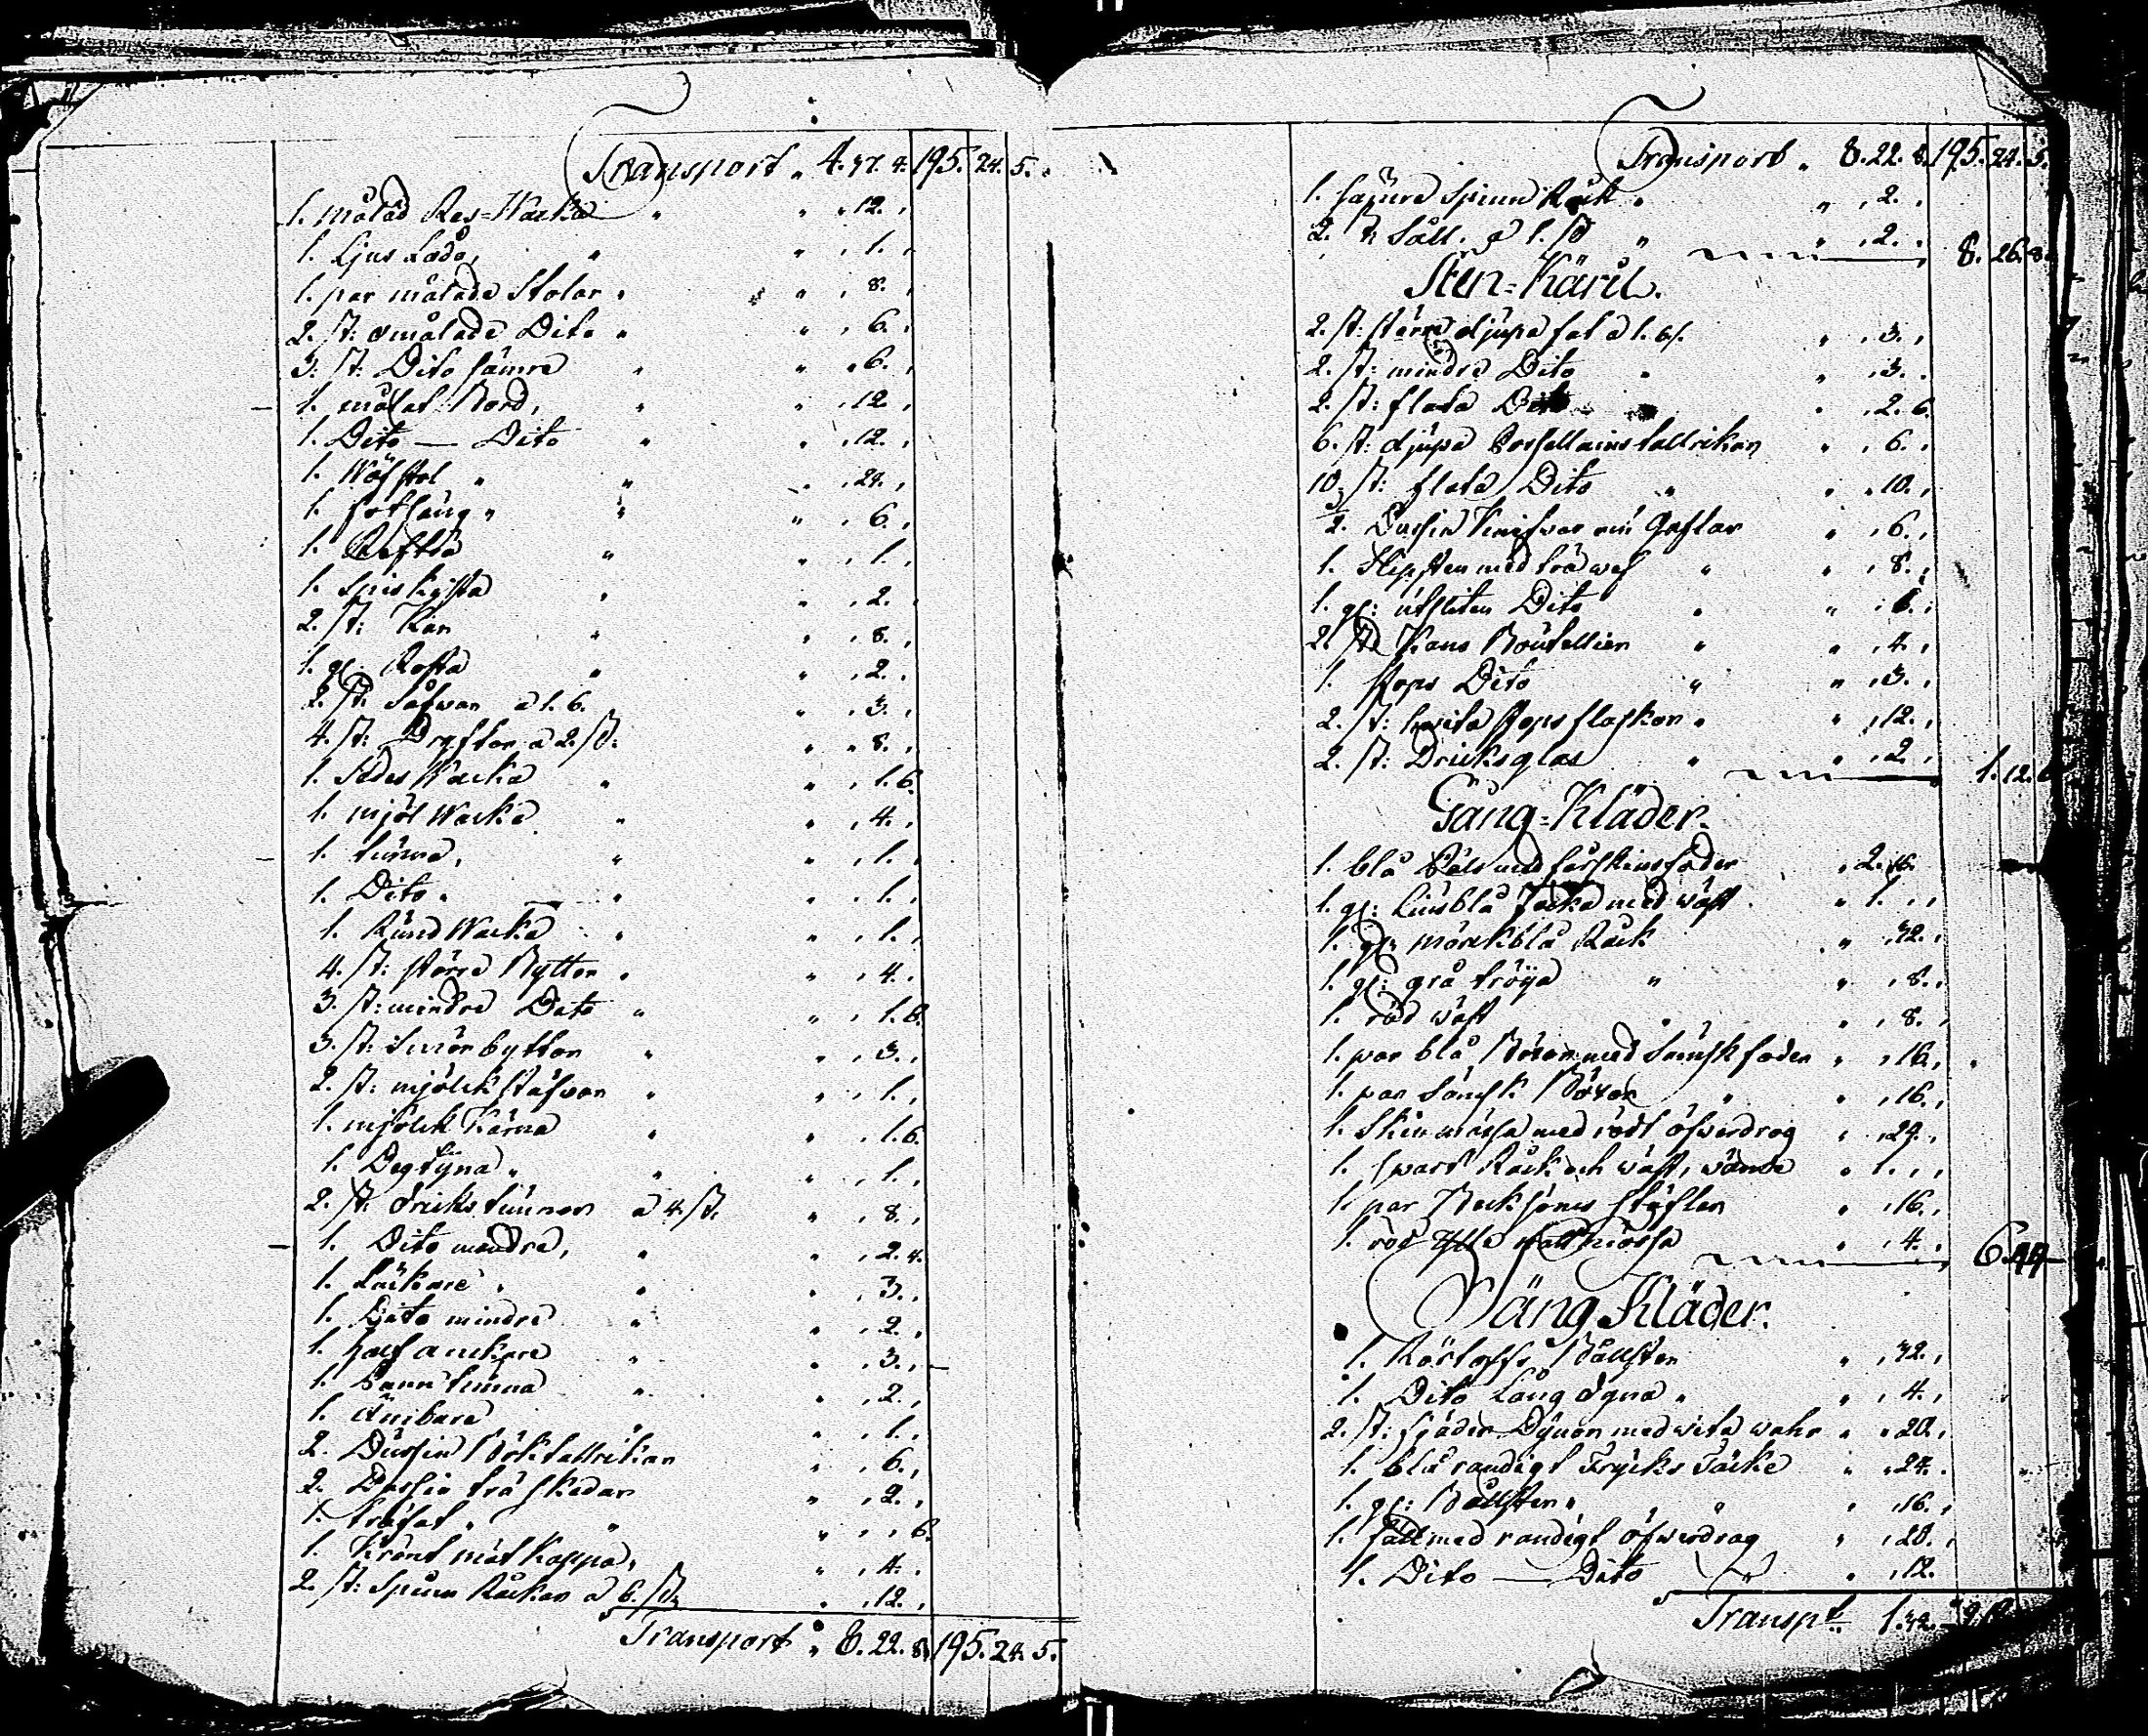 Transport „ 4. 47. 4. 195. 24. 5.
1. målad Res-Wacka „ „ „ 12. „
1. Ljus Låda, „ „ „ 1. „
1. par målade Stolar „ „ „ 8. „
2. st: omålade Dito „ „ „ 6. „
3. st: Dito sämre „ „ „ 6. „
1. målat Bord, „ „ „ 12. „
1. Dito — Dito „ „ „ 12. „
1. Wäfstol „ „ „ „ 24. „
1. sotsäng „ „ „ „ 6. „
1. „ „ „ 1. „
1. Spis kista „ „ „ 2. „
2. st: Kar „ „ „ 8. „
1. gl: „ „ „ 2. „
2. st: Såfwar a 1. 6. „ „ 3. „
4. st: Drÿftor a 2. st. „ „ 8. „
1. Sädes Wacka „ „ „ 1. 6.
1. mjöl Wacka „ „ „ 4. „
1. tunna, „ „ „ 1. „
1. Dito „ „ „ „ 1. „
1. Rund Wacka „ „ „ 1. „
4. st: större Byttor „ „ „ 4. „
3. st: mindre Dito „ „ „ 1. 6.
3. st: Smörbyttor „ „ „ 3. „
2. st: mjölck stäfwor „ „ „ 1. „
1. mjölck Kärna „ „ „ 1. 6.
1. Degtÿna „ „ „ „ 1. „
2. st: dricks tunnor a 4. st. „ „ 8. „
1. Dito mindre, „ „ „ 2. 4.
1. Läckare „ „ „ „ 3. „
1. Dito mindre „ „ „ 2. „
1. half anckare „ „ „ 3. „
1. tunna „ „ „ 2. „
1. Ämbare „ „ „ 1. „
2. Dussin Böktallrikar „ „ 6. „
2. Dussin trä skedar „ „ 2. „
1. träfat „ „ „ „ „ 6.
1. Krönt mät Kappa, „ „ 4. „
2. st: Spinn Råckar a 6. st. „ „ 12. „
Transport „ 8. 22. 8. 195. 24. 5.
Transport „ 8. 22. 8. 195. 24. 5.
1. sämre Spinn Råck „ „ „ 2. „
2. st: Såll. a 1. st „ „ „ 2. „ 8. 26. 8.
Sten-Käril.
2. st: större djupa fat a 1. 6. „ „ 3. „
2. st: mindre Dito „ „ „ 3. „
2. st: flata Dito „ „ 2. 6.
6. st: djupa Porsellains tallrikar „ „ 6. „
10. st: flata Dito „ „ „ 10. „
Dussin Knifwar med Gaflar „ „ 6. „
1. Slipsten med träwef „ „ „ 8. „
1. gl: utsliten Dito „ „ „ 6. „
2. st: Kans Boutellier „ „ „ 4. „
1. stops Dito „ „ „ 3. „
2. st: hwita stopsflaskor „ „ „ 12. „
2. st: Dricksglas „ „ „ 2. „ 1. 12. 6
Gång-Kläder.
1. blå Päls med fårskinsfoder „ 2. 16.
1. gl: Ljusblå Jacka med wäst „ 1. „ „
1. gl: mörckblå Råck „ „ 32. „
1. gl: grå tröÿa „ „ „ 8. „
1. röd wäst „ „ „ 8. „
1. par blå Böxor med Sämskfoder „ „ 16. „
1. par Sämsk Böxor „ „ „ 16. „
1. Skin mössa med rödt öfwerdrag „ „ 24. „
1. swart Råck och wäst, sämre „ 1. „ „
1. par Becksöms stöflar „ „ 16. „
1. röd Ylle natt mössa „ „ 4. „ 6. 44
Säng Kläder.
1. Bållster „ „ 32. „
1. Dito Lång dyna „ „ „ 4. „
2. st: fjäder Dynor med wita wahr „ „ 20. „
1. blå randigt Trycks Täcke „ „ 24. „
1. gl: Bållster „ „ „ „ „ 16. „
1. fäll med randigt öfwerdrag „ „ 20. „
1. Dito — Dito „ „ 12.
Transpt.